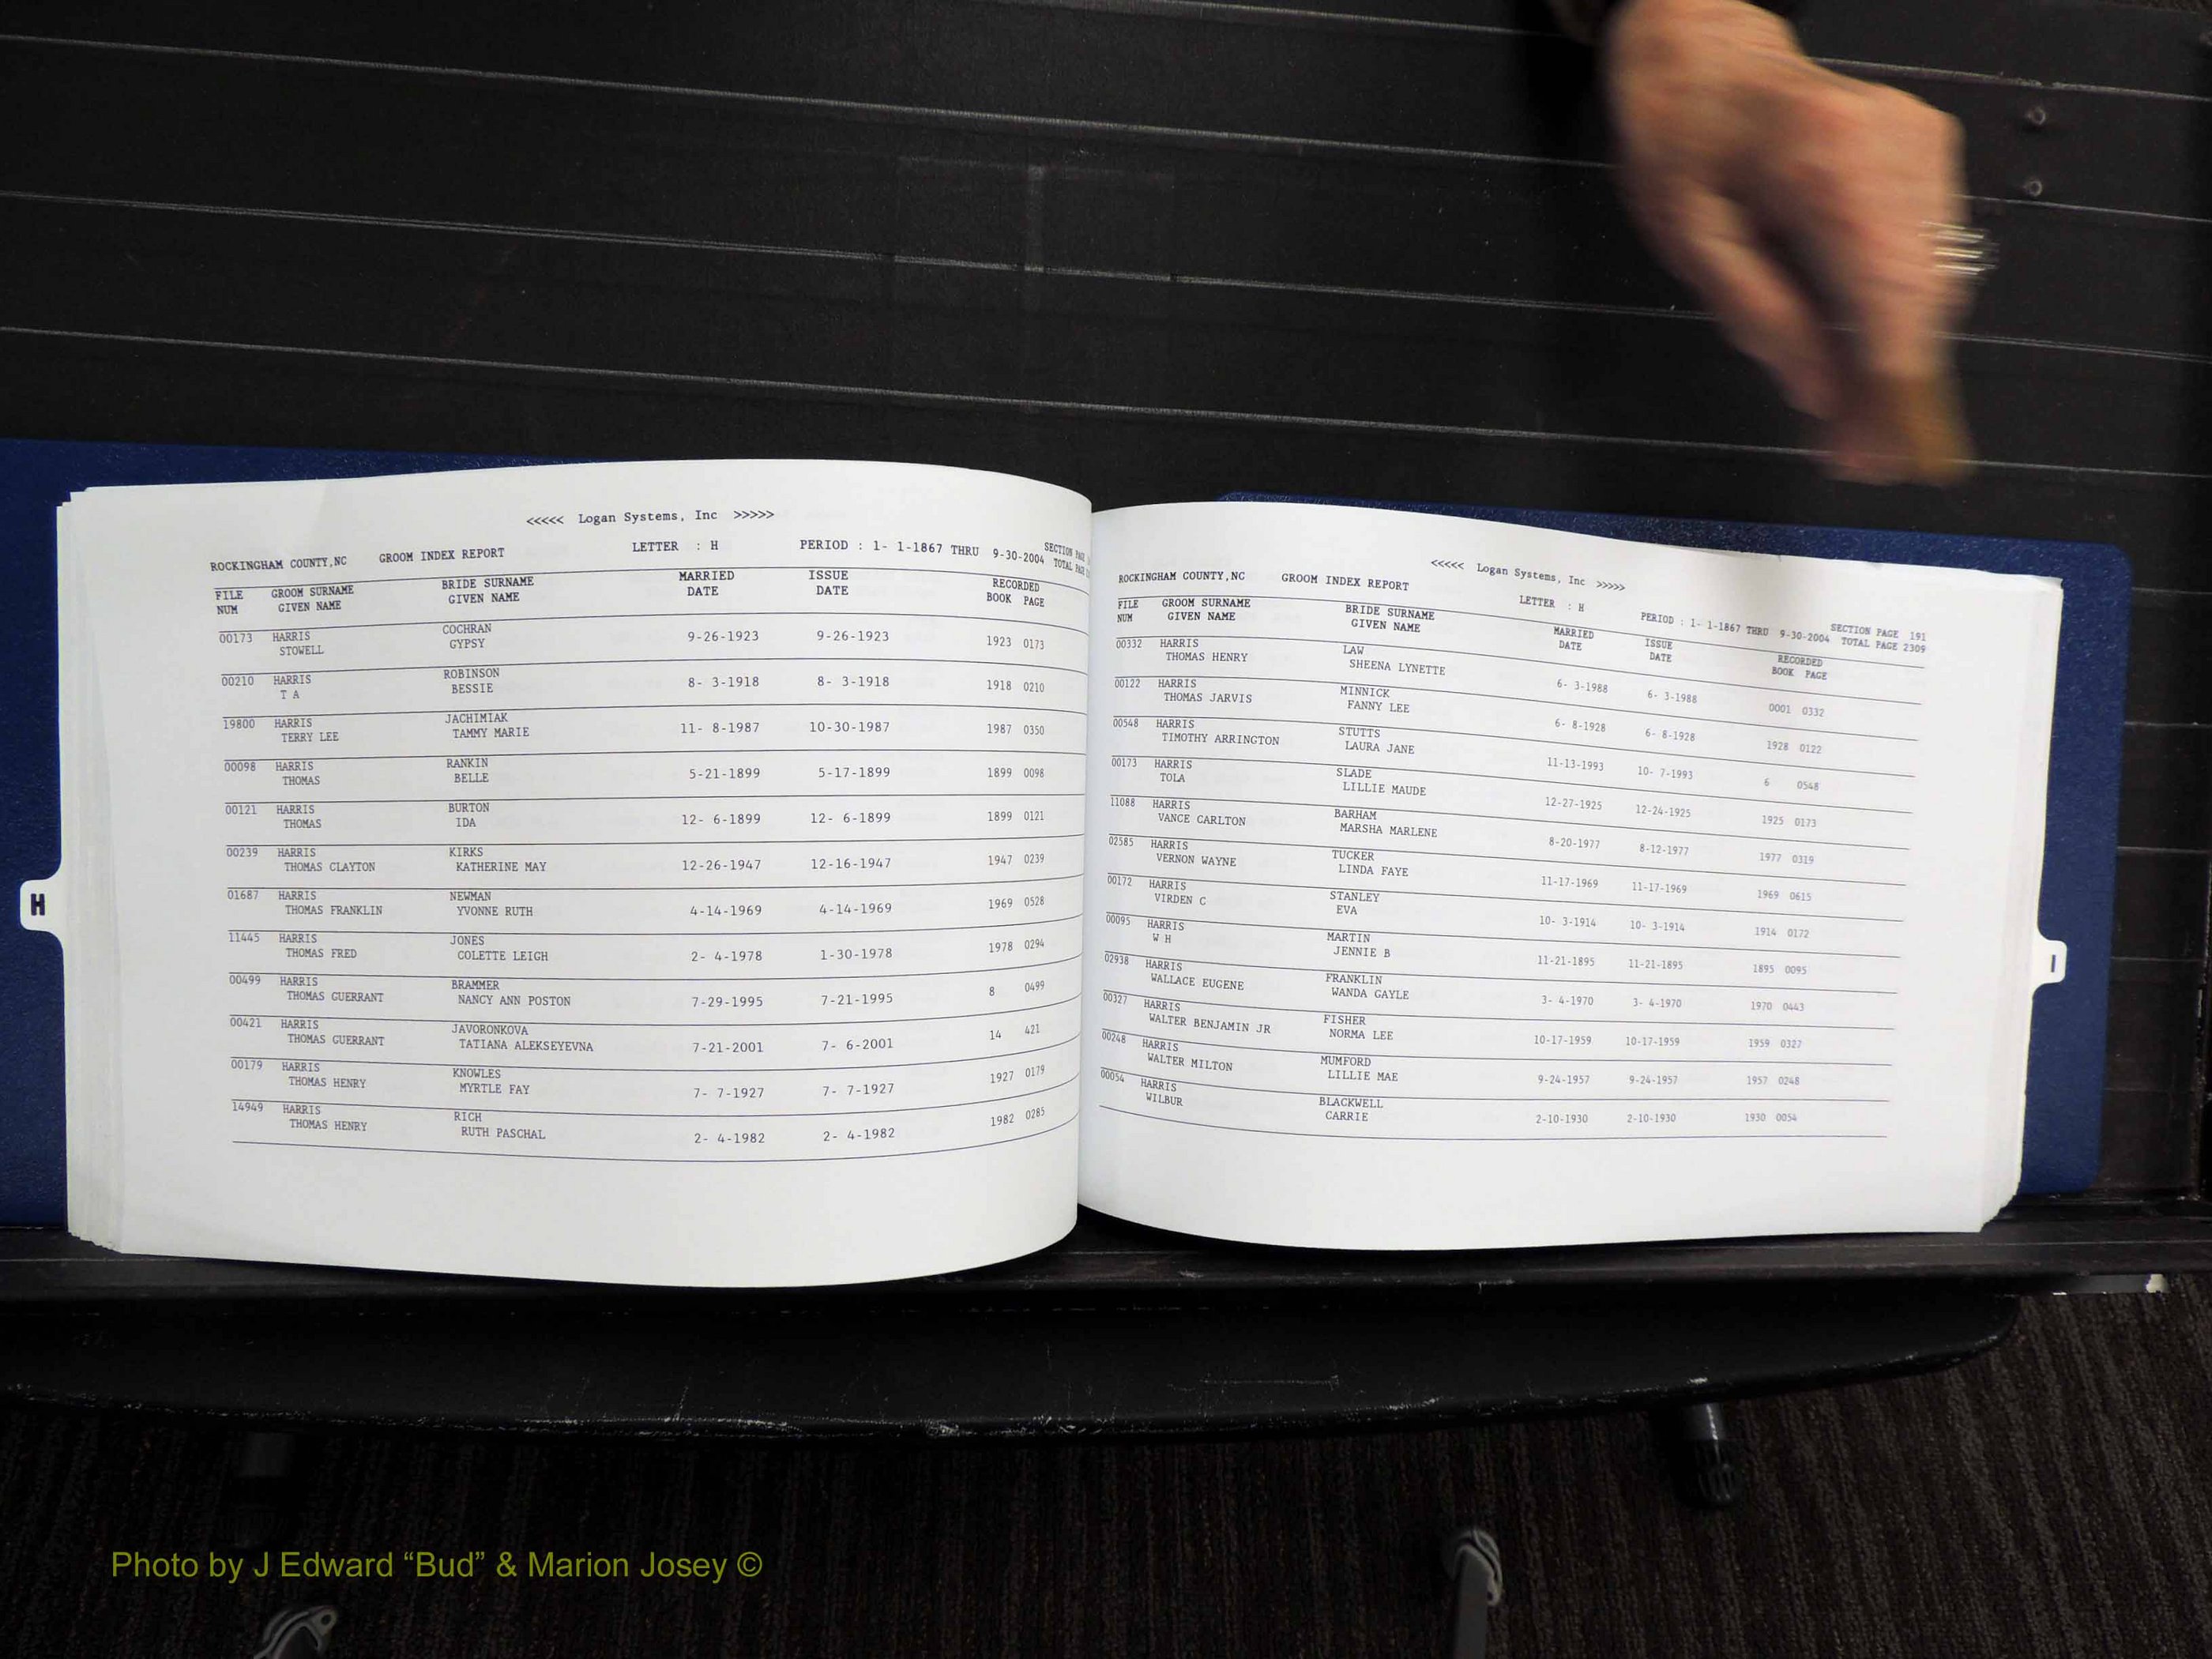 <<<<< Logan Systems, Inc >>>>>
ROCKINGHAM COUNTY,NC GROOM INDEX REPORT LETTER : H PERIOD : 1- 1-1867 THRU 9-30-2004 SECTION PAGE
TOTAL PAGE
FILE GROOM SURNAME BRIDE SURNAME MARRIED ISSUE RECORDED
NUM GIVEN NAME GIVEN NAME DATE DATE BOOK PAGE
00173 HARRIS COCHRAN 9-26-1923 9-26-1923 1923 0173
STOWELL GYPSY
00210 HARRIS ROBINSON 8- 3-1918 8- 3-1918 1918 0210
T A BESSIE
19800 HARRIS JACHIMIAK 11- 8-1987 10-30-1987 1987 0350
TERRY LEE TAMMY MARIE
00098 HARRIS RANKIN 5-21-1899 5-17-1899 1899 0098
THOMAS BELLE
00121 HARRIS BURTON 12- 6-1899 12- 6-1899 1899 0121
THOMAS IDA
00239 HARRIS KIRKS 12-26-1947 12-16-1947 1947 0239
THOMAS CLAYTON KATHERINE MAY
01687 HARRIS NEWMAN 4-14-1969 4-14-1969 1969 0528
THOMAS FRANKLIN YVONNE RUTH
11445 HARRIS JONES 2- 4-1978 1-30-1978 1978 0294
THOMAS FRED COLETTE LEIGH
00499 HARRIS BRAMMER 7-29-1995 7-21-1995 8 0499
THOMAS GUERRANT NANCY ANN POSTON
00421 HARRIS JAVORONKOVA 7-21-2001 7- 6-2001 14 421
THOMAS GUERRANT TATIANA ALEKSEYEVNA
00179 HARRIS KNOWLES 7- 7-1927 7- 7-1927 1927 0179
THOMAS HENRY MYRTLE FAY
14949 HARRIS RICH 2- 4-1982 2- 4-1982 1982 0285
THOMAS HENRY RUTH PASCHAL
H
<<<<< Logan Systems, Inc >>>>>
ROCKINGHAM COUNTY,NC GROOM INDEX REPORT LETTER : H PERIOD : 1- 1-1867 THRU 9-30-2004 SECTION PAGE 191
TOTAL PAGE 2309
FILE GROOM SURNAME BRIDE SURNAME MARRIED ISSUE RECORDED
NUM GIVEN NAME GIVEN NAME DATE DATE BOOK PAGE
00332 HARRIS LAW 6- 3-1988 6- 3-1988 0001 0332
THOMAS HENRY SHEENA LYNETTE
00122 HARRIS MINNICK 6- 8-1928 6- 8-1928 1928 0122
THOMAS JARVIS FANNY LEE
00548 HARRIS STUTTS 11-13-1993 10- 7-1993 6 0548
TIMOTHY ARRINGTON LAURA JANE
00173 HARRIS SLADE 12-27-1925 12-24-1925 1925 0173
TOLA LILLIE MAUDE
11088 HARRIS BARHAM 8-20-1977 8-12-1977 1977 0319
VANCE CARLTON MARSHA MARLENE
02585 HARRIS TUCKER 11-17-1969 11-17-1969 1969 0615
VERNON WAYNE LINDA FAYE
00172 HARRIS STANLEY 10- 3-1914 10- 3-1914 1914 0172
VIRDEN C EVA
00095 HARRIS MARTIN 11-21-1895 11-21-1895 1895 0095
W H JENNIE B
02938 HARRIS FRANKLIN 3- 4-1970 3- 4-1970 1970 0443
WALLACE EUGENE WANDA GAYLE
00327 HARRIS FISHER 10-17-1959 10-17-1959 1959 0327
WALTER BENJAMIN JR NORMA LEE
00248 HARRIS MUMFORD 9-24-1957 9-24-1957 1957 0248
WALTER MILTON LILLIE MAE
00054 HARRIS BLACKWELL 2-10-1930 2-10-1930 1930 0054
WILBUR CARRIE
I
Photo by J Edward “Bud” & Marion Josey ©